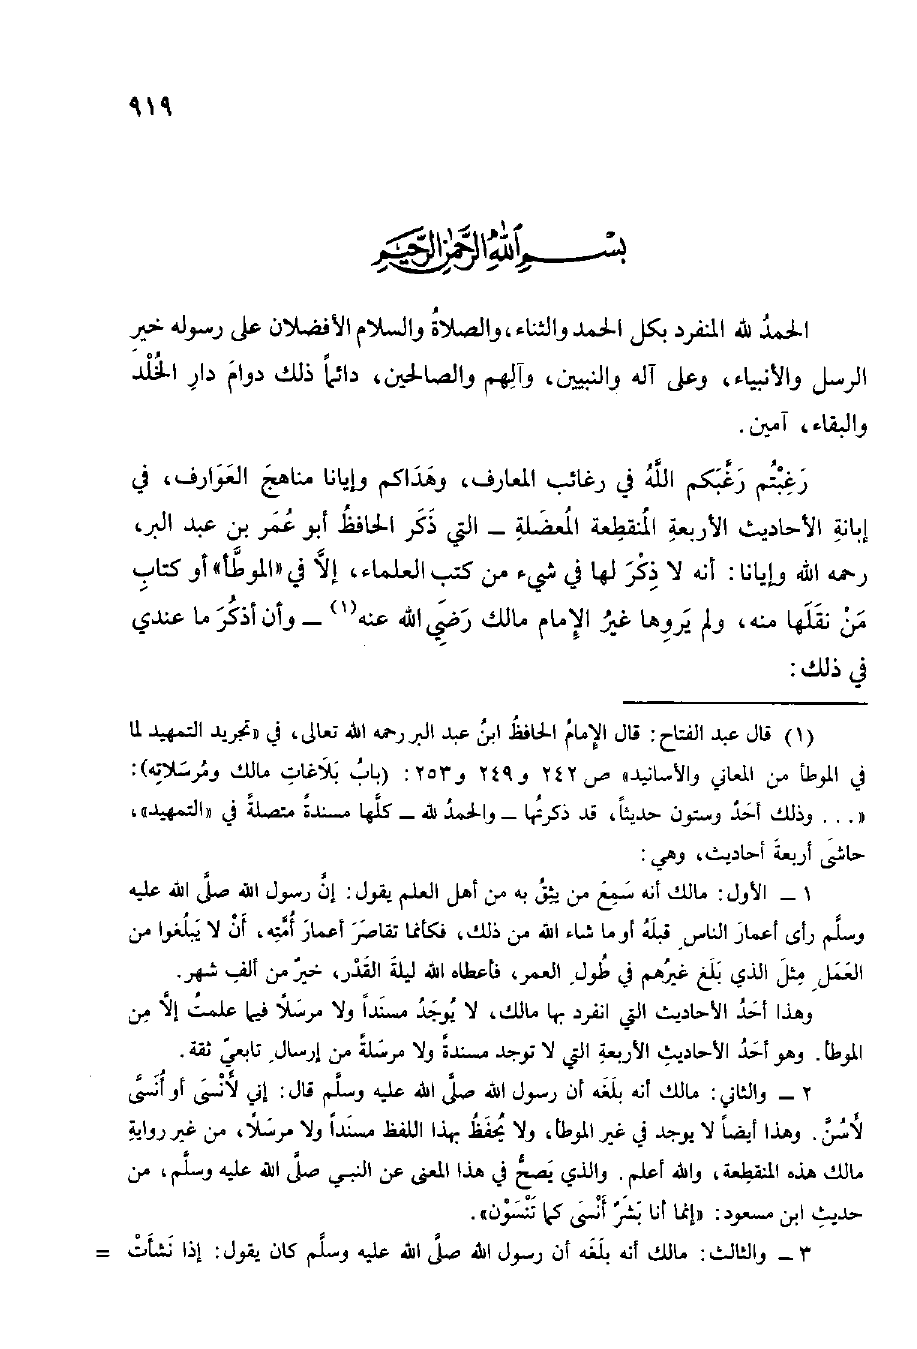 ٩١٩
بسم الله الرحمن الرحيم
الحمدُ لله المنفرد بكل الحمد والثناء، والصلاةُ والسلام الأفضلان على رسوله خير
الرسل والأنبياء، وعلى آله والنبيين، وآلِهم والصالحين، دائماً ذلك دوامَ دارِ الخُلْدِ
والبقاء، آمين.
رَغِبْتُم رَغَّبَكم اللَّهُ في رغائب المعارف، وهَدَاكم وإيانا مناهجَ العَوَارف، في
إبانةِ الأحاديث الأربعةِ المُنقطعة المُعضَلةِ ــ التي ذَكَر الحافظُ أبو عُمَر بن عبد البر،
رحمه الله وإيانا: أنه لا ذِكْرَ لها في شيء من كتب العلماء، إلَّا في «الموطَّأ» أو كتابِ
مَنْ نقَلَها منه، ولم يَروِها غيرُ الإمام مالك رَضِيَ الله عنه(١) ــ وأن أذكُرَ ما عندي
في ذلك:
(١) قال عبد الفتاح: قال الإمامُ الحافظُ ابنُ عبد البر رحمه الله تعالى، في «تجريد التمهيد لما
في الموطأ من المعاني والأسانيد» ص ٢٤٢ و ٢٤٩ و ٢٥٣: (بابُ بَلَاغاتِ مالك ومُرسَلاتِه):
«... وذلك أحَدٌ وستون حديثاً، قد ذكرتُها ــ والحمدُ لله ــ كلَّها مسندةً متصلةً في «التمهيد»،
حاشَى أربعةَ أحاديث، وهي:
١ ــ الأول: مالك أنه سَمِعَ من يثِقُ به من أهل العلم يقول: إنَّ رسول الله صلَّى الله عليه
وسلَّم رأى أعمارَ الناسِ قبلَهُ أو ما شاء الله من ذلك، فكأنما تقاصَرَ أعمارَ أُمَّتِه، أنْ لا يَبلُغوا من
العَمَلِ مِثلَ الذي بَلَغ غيرُهم في طُولِ العمر، فأعطاه الله ليلةَ القَدْر، خيرٌ من ألفِ شهر.
وهذا أحَدُ الأحاديث التي انفرد بها مالك، لا يُوجَدُ مسنَداً ولا مرسَلاً فيما علمتُ إلَّا مِن
الموطأ. وهو أحَدُ الأحاديثِ الأربعةِ التي لا توجد مسندةً ولا مرسَلةً من إرسالِ تابعيّ ثقة.
٢ ــ والثاني: مالك أنه بلَغَه أن رسول الله صلَّى الله عليه وسلَّم قال: إني لَأَنْسَى أو أُنَسَّى
لأَسُنَّ. وهذا أيضاً لا يوجد في غير الموطأ، ولا يُحفَظُ بهذا اللفظ مسنَداً ولا مرسَلاً، من غير روايةِ
مالك هذه المنقطعة، والله أعلم. والذي يَصحُّ في هذا المعنى عن النبي صلَّى الله عليه وسلَّم، من
حديثِ ابن مسعود: «إنما أنا بَشَرٌ أَنْسَى كما تَنْسَوْن».
٣ ــ والثالث: مالك أنه بلَغَه أن رسول الله صلَّى الله عليه وسلَّم كان يقول: إذا نَشأَتْ =